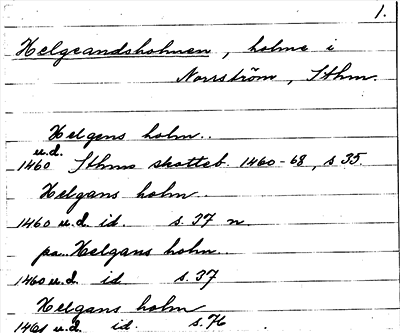 1.
Helgeandsholmen, holme i
Norrström, Sthm.
Helgens holm..
u.d.
1460 Sthms skotteb. 1460-68, s 35.
Helgans holm..
1460 u.d. id. s. 37 n.
pa.. Helgans holm..
1460 u.d. id. s. 37
Helgans holm
1461 u.d. id. s. 76